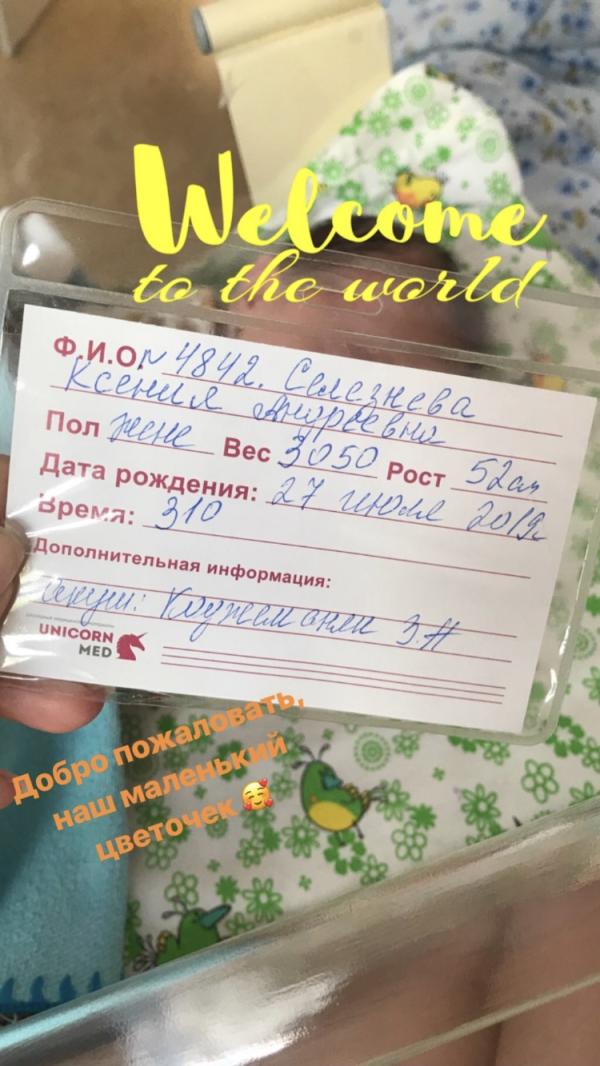 Welcome
to the world
Ф.И.О. № 4842. Селезнева
Ксения Андреевна
Пол жене Вес 3050 Рост 52см
Дата рождения: 27 июля 2019г
Время: 310
Дополнительная информация:
акуш: З.Н
UNICORN
MED
Добро пожаловать,
наш маленький
цветочек 🥰